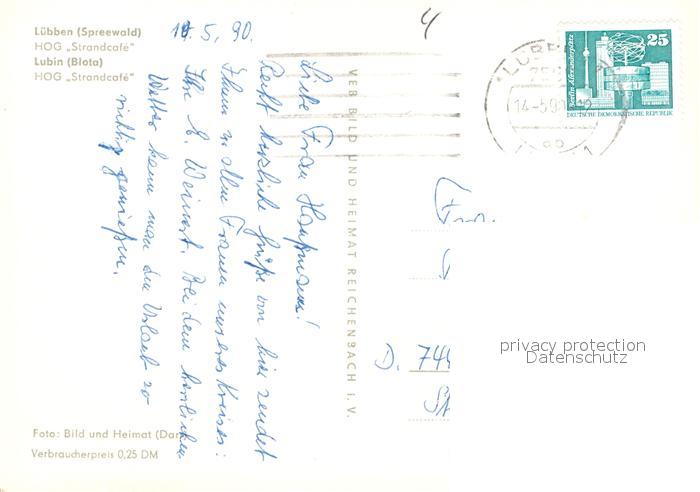 Lübben (Spreewald)
HOG „Strandcafé"
Lubin (Błota)
HOG „Strandcafé"
5. 90.
4
Liebe Frau
herzliche Grüße von hier sendet
Ihnen u. allen Frauen unseres Kreises:
Ihre E. Weinert. Bei dem herrlichen
Wetter kann man den Urlaub so
richtig genießen.
VEB BILD UND HEIMAT REICHENBACH I. V.
25
Berlin-Alexanderplatz
DEUTSCHE DEMOKRATISCHE REPUBLIK
14-5.90
D. 744
privacy protection
Datenschutz
Foto: Bild und Heimat
Verbraucherpreis 0,25 DM